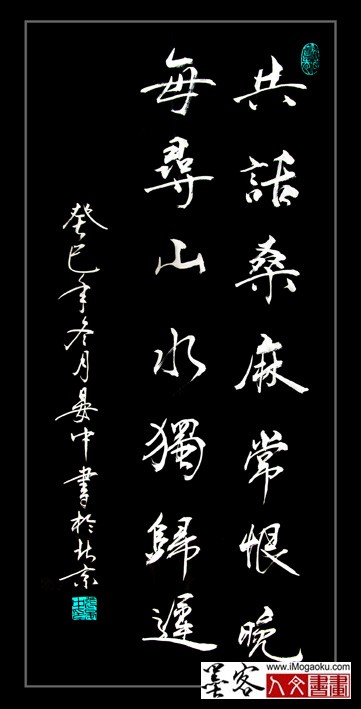 共話桑麻常恨晚
每尋山水獨歸遲
癸巳年冬月晏中書於北京
墨客
www.iMogaoku.com
人文書畫